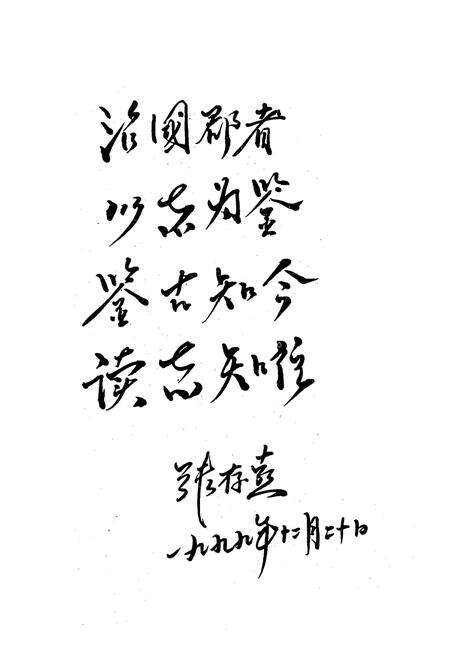 治國郡者
以志为鉴
鉴古知今
读志知
张存
一九九九年十二月二十日